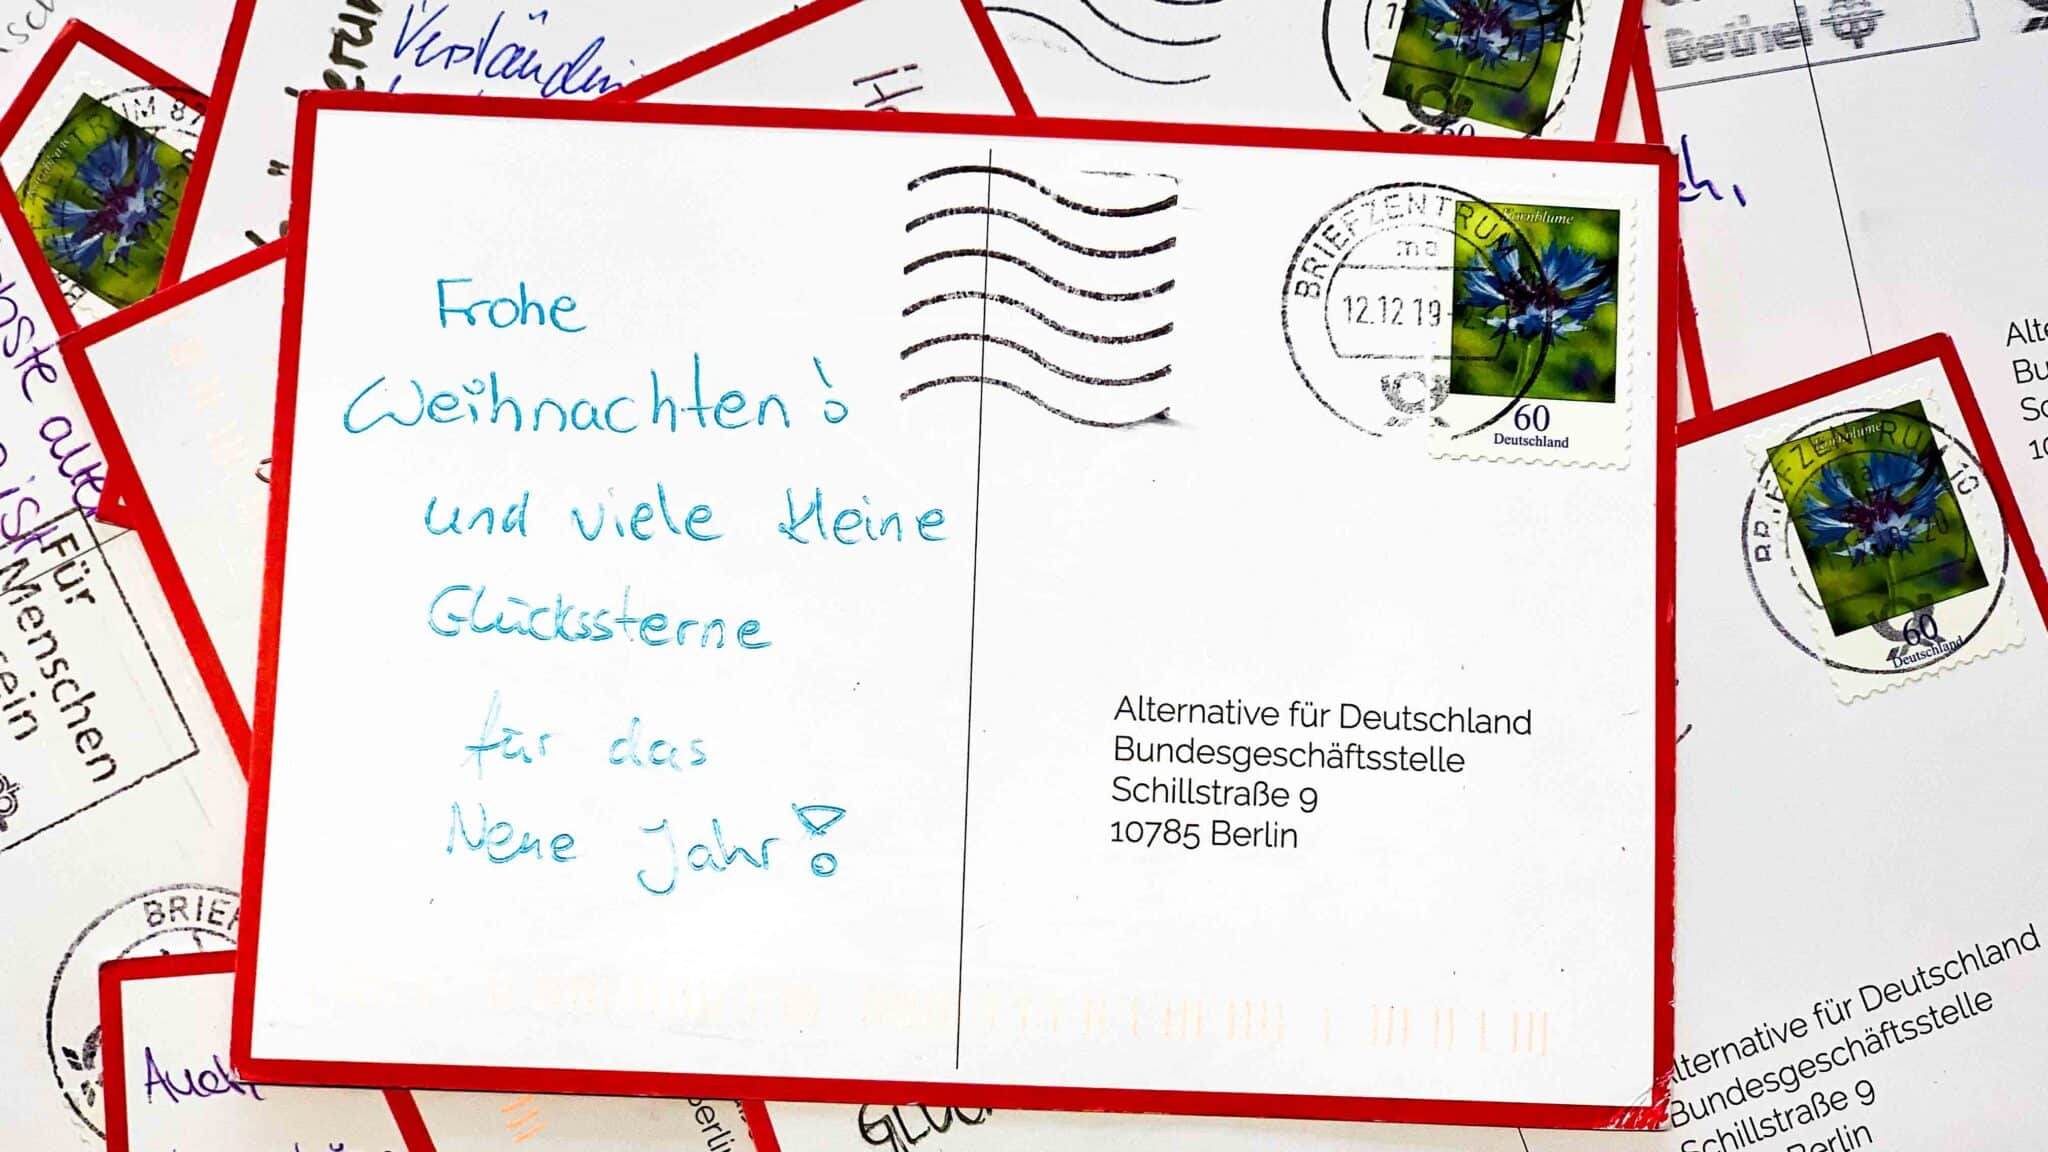 Verständni
BRIEFZENTRUM
ma
12.12.19-
Kornblume
60
Deutschland
Frohe
Weihnachten!
und viele kleine
Glückssterne
für das
Neue Jahr!
Alternative für Deutschland
Bundesgeschäftsstelle
Schillstraße 9
10785 Berlin
Bethel
60
Kornblume
60
Deutschland
Für
Menschen
BRIEF
Auch
Alternative für Deutschland
Bundesgeschäftsstelle
Schillstraße 9
Berlin